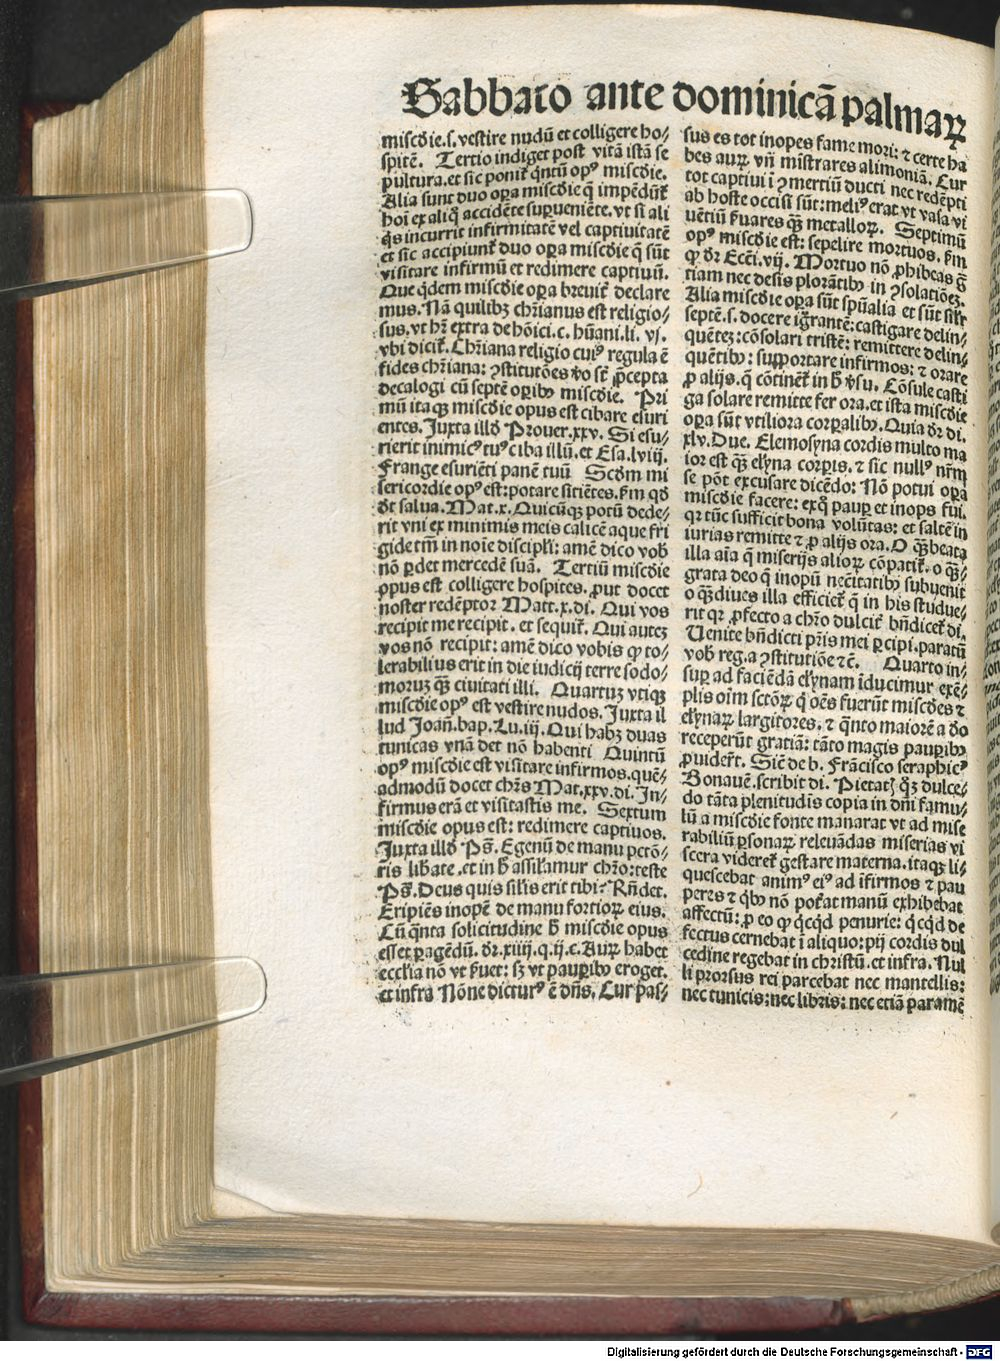 Sabbato ante dominicã palmaꝝ
misc̄die.s. vestire nudũ et colligere ho⸗
spitẽ. Tertio indiget post vitã istã se
pultura. et sic ponit̃ q̃ntũ opꝰ misc̄die.
Alia sunt duo oꝑa misc̄die q̃ impẽdũt̃
hoĩ ex aliq̃ accidẽte suꝑueniẽte. vt si ali
q̃s incurrit infirmitatẽ vel captiuitatẽ
et sic accipiunt̃ duo oꝑa misc̄die q̃ sũt
visitare infirmũ et redimere captiuũ.
Que q̃dem misc̄die oꝑa breuit̃ declare
mus. Nã quilibꝫ chr̃ianus est religio⸗
sus. vt hr̃ extra de hõici. c. hũani. li. vj.
vbi dicit̃. Chr̃iana religio cuiꝰ regula ẽ
fides chr̃iana: ꝯstitutões v̾o st̃ p̃cepta
decalogi cũ septẽ oꝑibꝰ misc̄die. Pri
mũ itaqꝫ misc̄die opus est cibare esuri
entes. Juxta illd̾ Prouer.xxv. Si esu⸗
rierit inimicꝰ tuꝰ ciba illũ. et Esa.lviij.
Frange esuriẽti panẽ tuũ Scd̾m mi
sericordie opꝰ est: potare sitiẽtes. ẜm qd̾
d̾t salua. Mat.x. Quicũqꝫ potũ dede⸗
rit vni ex minimis meis calicẽ aque fri
gide tm̃ in noĩe discipl̃i: amẽ dico vob̾
nõ ꝑdet mercedẽ suã. Tertiũ misc̄die
opus est colligere hospites. put docet
noster redẽptor Matt.x.di. Qui vos
recipit me recipit. et sequit̃. Qui autẽ
vos nõ recipit: amẽ dico vobis ꝙ to⸗
lerabilius erit in die iudicij terre sodo⸗
moruꝫ q̃ꝫ ciuitati illi. Quartuꝫ vtiqꝫ
misc̄die opꝰ est vestire nudos. Juxta il
lud Joañ.bap.Lu.iij. Qui habꝫ duas
tunicas vnã det nõ habenti Quintũ
opꝰ misc̄die est visitare infirmos. quẽ⸗
admodũ docet chr̃s Mat.xxv.di. In⸗
firmus erã et visitastis me. Sextum
misc̄die opus est: redimere captiuos.
Juxta illd̾ Ps̃. Egenũ de manu pctõ⸗
ris lib̾ate. et in h̾ assil̃amur chr̃o: teste
Ps̃. Deus quis sil̃is erit tibi? Rñdet.
Eripiẽs inopẽ de manu fortioꝝ eius.
Cũ q̃nta solicitudine h̾ misc̄die opus
esset ꝑagẽdũ. d̾r.xiiij.q.ij.c. Auꝝ habet
eccl̃ia nõ vt ẜuet: sꝫ vt pauꝑibꝰ eroget.
et infra Nõne dicturꝰ ẽ dñs. Cur pas⸗
sus es tot inopes fame mori: ⁊ certe ha
bes auꝝ. vñ mĩstrares alimoniã. Cur
tot captiui ĩ ꝯmertiũ ducti nec redẽpti
ab hoste occisi sũt: meliꝰ erat vt vasa vi
uẽtiũ ẜuares q̃ꝫ metalloꝝ. Septimũ
opꝰ misc̄die est: sepelire mortuos. ẜm
ꝙ d̾r Ecc̃i.vij. Mortuo nõ ꝓhibeas g̃
tiam nec desis plorãtibꝰ in ꝯsolatiõeꝫ.
Alia misc̄die oꝑa sũt spũalia et sũt sil̃r
septẽ.s. docere igrãntẽ: castigare delin⸗
quẽteꝫ: cõsolari tristẽ: remittere delin⸗
quẽtibꝰ: supportare infirmos: ⁊ orare
ꝓ alijs. q̃ cõtinẽt̃ in h̾ v̾su. Cõsule casti
ga solare remitte fer ora. et ista misc̄die
oꝑa sũt vtiliora corꝑalibꝰ. Quia d̾r di.
xlv. Due. Elemosyna cordis multo ma
ior est q̃ꝫ elyna corꝑis. ⁊ sic nullꝰ nr̃m
se põt excusare dicẽdo: Nõ potui oꝑa
misc̄die facere: exq̃ pauꝑ et inops fui.
qꝛ tũc sufficit bona volũtas: et saltẽ in
iurias remitte ⁊ ꝓ alijs ora. O q̃ꝫ beata
illa aĩa q̃ miserijs alioꝝ cõpatit̃. o q̃ꝫ
grata deo q̃ inopũ nec̃itatibꝰ subuenit
o q̃ꝫ diues illa efficiet̃ q̃ in his studue⸗
rit qꝛ ꝓfecto a chr̃o dulcit̃ bñdicet̃ di.
Uenite bñdicti pr̃is mei ꝑcipi. paratũ
vob̾ reg. a ꝯstitutiõe ⁊c̃. Quarto in⸗
suꝑ ad faciẽdã elynam ĩducimur exẽ⸗
plis oĩm sctõꝝ q̃ oẽs fuerũt misc̄des ⁊
elynaꝝ largitores. ⁊ q̃nto maiorẽ a d̾o
receperũt gratiã: tãto magis pauꝑibꝰ
ꝓuider̃t. Sic̃ de b. Frãcisco seraphicꝰ
Bonauẽ. scribit di. Pietatꝫ q̃ꝫ dulce⸗
do tãta plenitudis copia in dñi famu⸗
lũ a misc̄die fonte manarat vt ad mise
rabiliũ ꝑsonaꝝ releuãdas miserias vi
scera videret̃ gestare materna. itaqꝫ li⸗
quescebat animꝰ eiꝰ ad ĩfirmos ⁊ pau
peres ⁊ q̃bꝰ nõ pot̾at manũ exhibebat
affectũ: ꝓ eo ꝙ q̃cq̃d penurie: q̃cq̃d de
fectus cernebat ĩ aliquo: pij cordis dul
cedine regebat in christũ. et infra. Nul
li prorsus rei parcebat nec mantellis:
nec tunicis: nec libris: nec etiã paramẽ
Digitalisierung gefördert durch die Deutsche Forschungsgemeinschaft - DFG